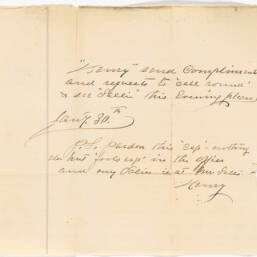 "Kenny" send Compliments
and requests to "call round"
& see "Felix" this Evening please
Jany. 30th
P.S. Pardon this "cap" nothing
but "fools cap" in the office
and my is at
Kenny